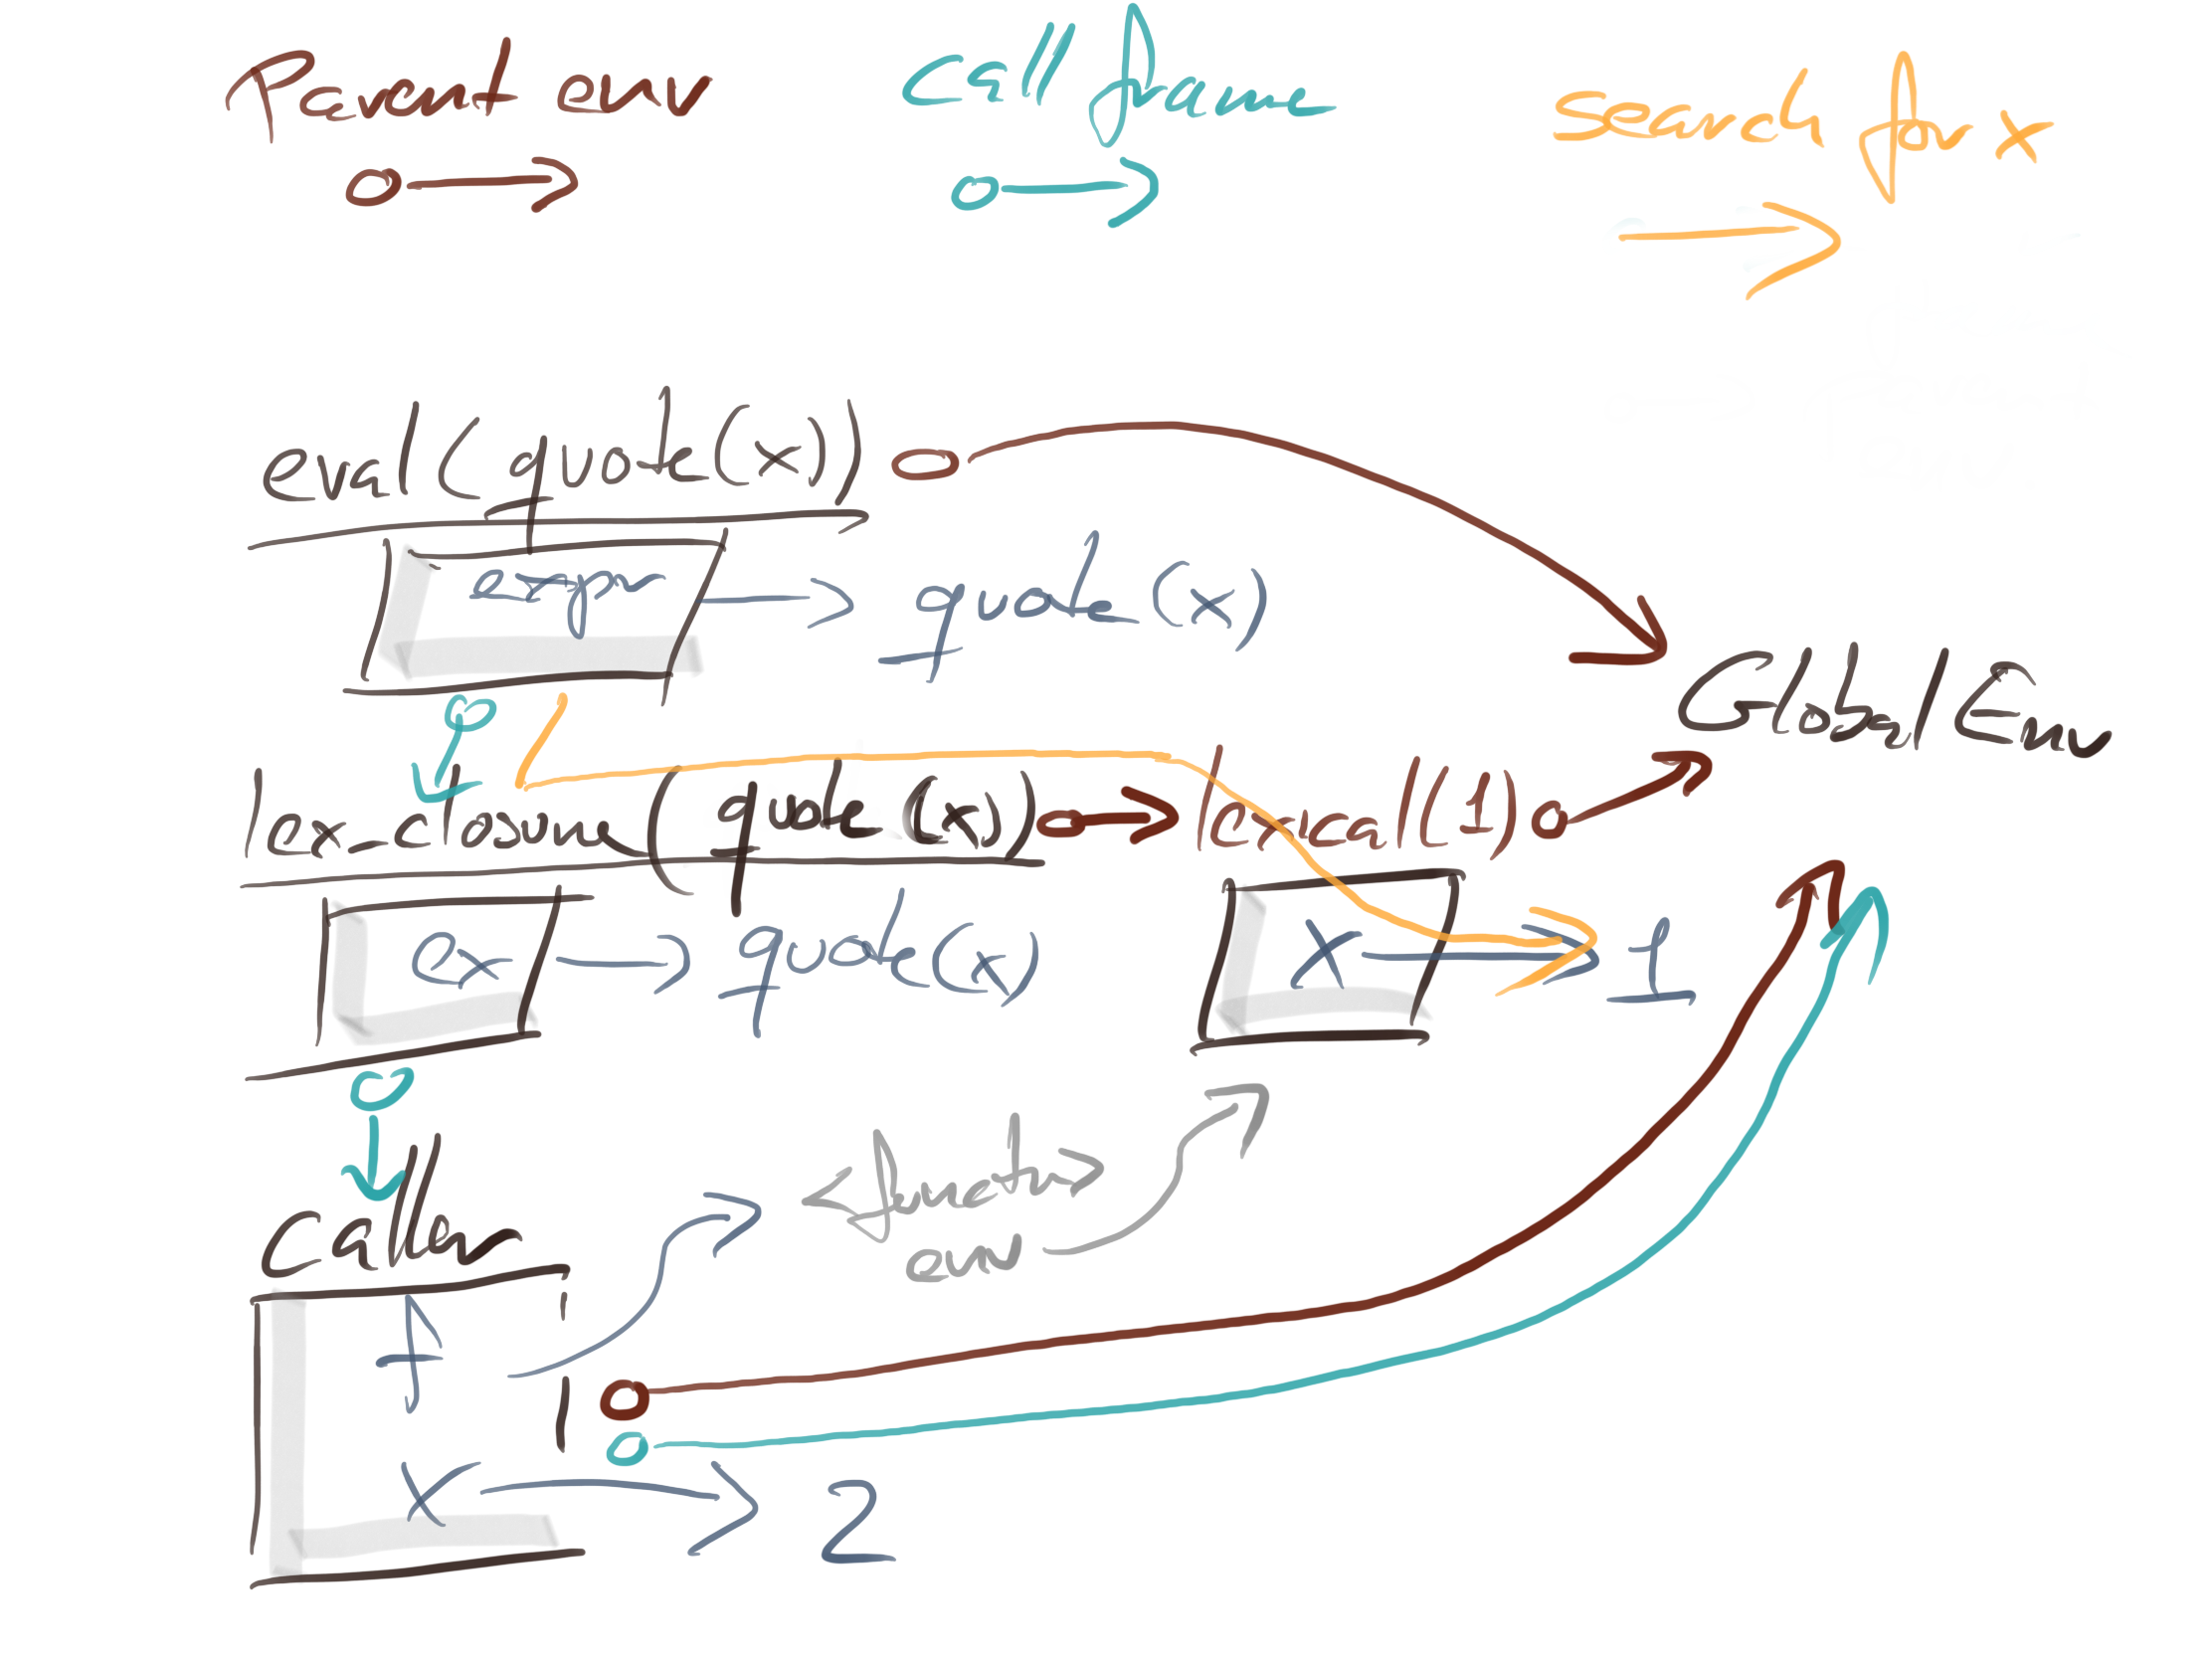 Parent env
call frame
search for x
eval(quote(x))
expr
quote(x)
GlobalEnv
lex_closure(quote(x))
lexical(1)
ex
quote(x)
x
1
<function>
env
Caller
f
x
2